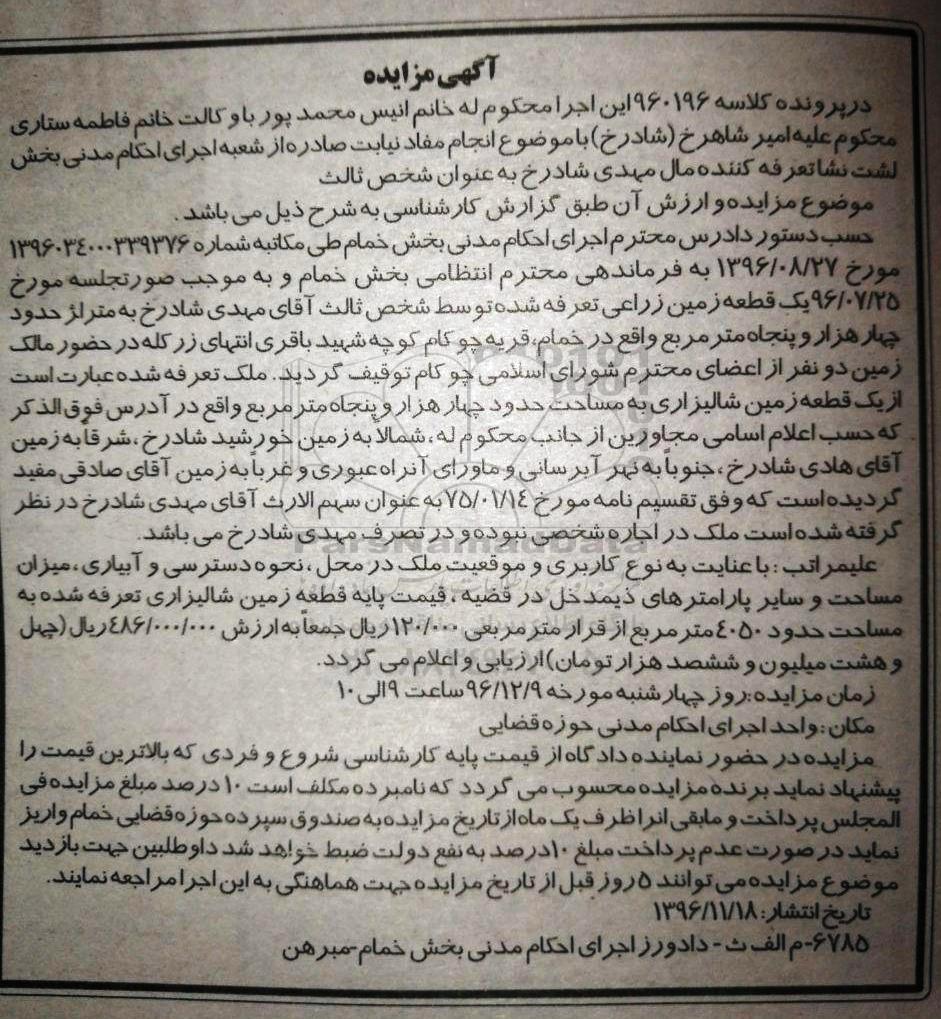 آگهی مزایده
درپرونده کلاسه ۹۶۰۱۹۶ این اجرا محکوم له خانم انیس محمد پور با وکالت خانم فاطمه ستاری
محکوم علیه امیر شاهرخ (شادرخ) با موضوع انجام مفاد نیابت صادره از شعبه اجرای احکام مدنی بخش
لشت نشا تعرفه کننده مال مهدی شادرخ به عنوان شخص ثالث
موضوع مزایده و ارزش آن طبق گزارش کارشناسی به شرح ذیل می باشد .
حسب دستور دادرس محترم اجرای احکام مدنی بخش خمام طی مکاتبه شماره ۱۳۹۶۰۳۴۰۰۰۳۳۹۳۷۶
مورخ ۱۳۹۶/۰۸/۲۷ به فرماندهی محترم انتظامی بخش خمام و به موجب صورتجلسه مورخ
۹۶/۰۷/۲۵ یک قطعه زمین زراعی تعرفه شده توسط شخص ثالث آقای مهدی شادرخ به متراژ حدود
چهار هزار و پنجاه متر مربع واقع در خمام، قریه چوکام کوچه شهید باقری انتهای زرکله در حضور مالک
زمین دو نفر از اعضای محترم شورای اسلامی چوکام توقیف گردید. ملک تعرفه شده عبارت است
از یک قطعه زمین شالیزاری به مساحت حدود چهار هزار و پنجاه متر مربع واقع در آدرس فوق الذکر
که حسب اعلام اسامی مجاورین از جانب محکوم له، شمالاً به زمین خورشید شادرخ ، شرقاً به زمین
آقای هادی شادرخ ، جنوباً به نهر آبرسانی و ماورای آن راه عبوری و غرباً به زمین آقای صادقی مفید
گردیده است که وفق تقسیم نامه مورخ ۷۵/۰۱/۱۴ به عنوان سهم الارث آقای مهدی شادرخ در نظر
گرفته شده است ملک در اجاره شخصی نبوده و در تصرف مهدی شادرخ می باشد.
علیمراتب : با عنایت به نوع کاربری و موقعیت ملک در محل ، نحوه دسترسی و آبیاری ، میزان
مساحت و سایر پارامترهای ذیمدخل در قضیه ، قیمت پایه قطعه زمین شالیزاری تعرفه شده به
مساحت حدود ۴۰۵۰ متر مربع از قرار متر مربعی ۱۲۰/۰۰۰ ریال جمعاً به ارزش ۴۸۶/۰۰۰/۰۰۰ ریال (چهل
و هشت میلیون و ششصد هزار تومان) ارزیابی و اعلام می گردد.
زمان مزایده: روز چهارشنبه مورخه ۹۶/۱۲/۹ ساعت ۹ الی ۱۰
مکان : واحد اجرای احکام مدنی حوزه قضایی
مزایده در حضور نماینده دادگاه از قیمت پایه کارشناسی شروع و فردی که بالاترین قیمت را
پیشنهاد نماید برنده مزایده محسوب می گردد که نامبرده مکلف است ۱۰ درصد مبلغ مزایده فی
المجلس پرداخت و مابقی انرا ظرف یک ماه از تاریخ مزایده به صندوق سپرده حوزه قضایی خمام واریز
نماید در صورت عدم پرداخت مبلغ ۱۰درصد به نفع دولت ضبط خواهد شد داوطلبین جهت بازدید
موضوع مزایده می توانند ۵ روز قبل از تاریخ مزایده جهت هماهنگی به این اجرا مراجعه نمایند.
تاریخ انتشار: ۱۳۹۶/۱۱/۱۸
۶۷۸۵-م الف ث - دادورز اجرای احکام مدنی بخش خمام-مبرهن
ParsNamadData